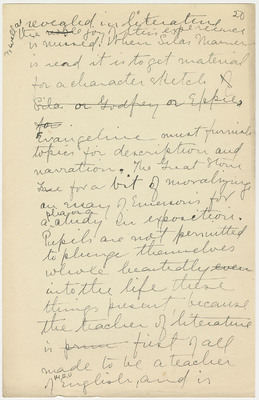 20
revealed in literature
the joy of this experience
is missed. When Silas Marner
is read it is to get material
for a character sketch of
Silas or Godfrey or Eppie,
Evangeline must furnish
topics for description and
narration. The Great Stone
Face for a bit of moralizing
an essay of Emerson's for
a study in exposition.
Pupils are not permitted
to plunge themselves
whole heartedly even
into the life these
things present, because
the teacher of literature
is first of all
made to be a teacher
of English, and is